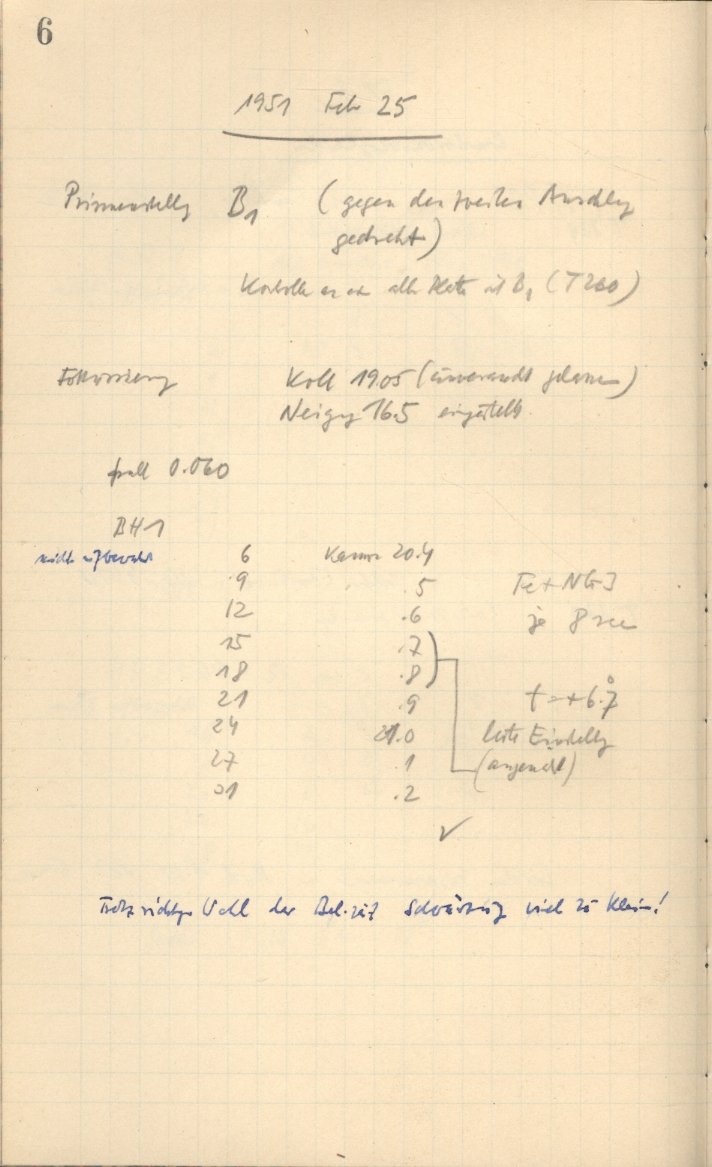 6
1951 Feb 25
Prismenstellg B1 (gegen den zweiten Anschlag
gedreht)
Kontrolle an alle Platte mit B1 (T260)
Fokussierung Koll 19.05 (unverändt gelassen)
Neigg 16.5 eingestellt
Spalt 0.060
BH1
nicht aufbewahrt 6 Kamm 20.4
9 .5 Fe+
12 .6 je 8 sec
15 .7
18 .8
21 .9 t=+6.7°
24 21.0 beste Einstellg
27 .1
31 .2
Trotz richtiger Wahl der Bel.zeit Schwärzung viel zu klein!